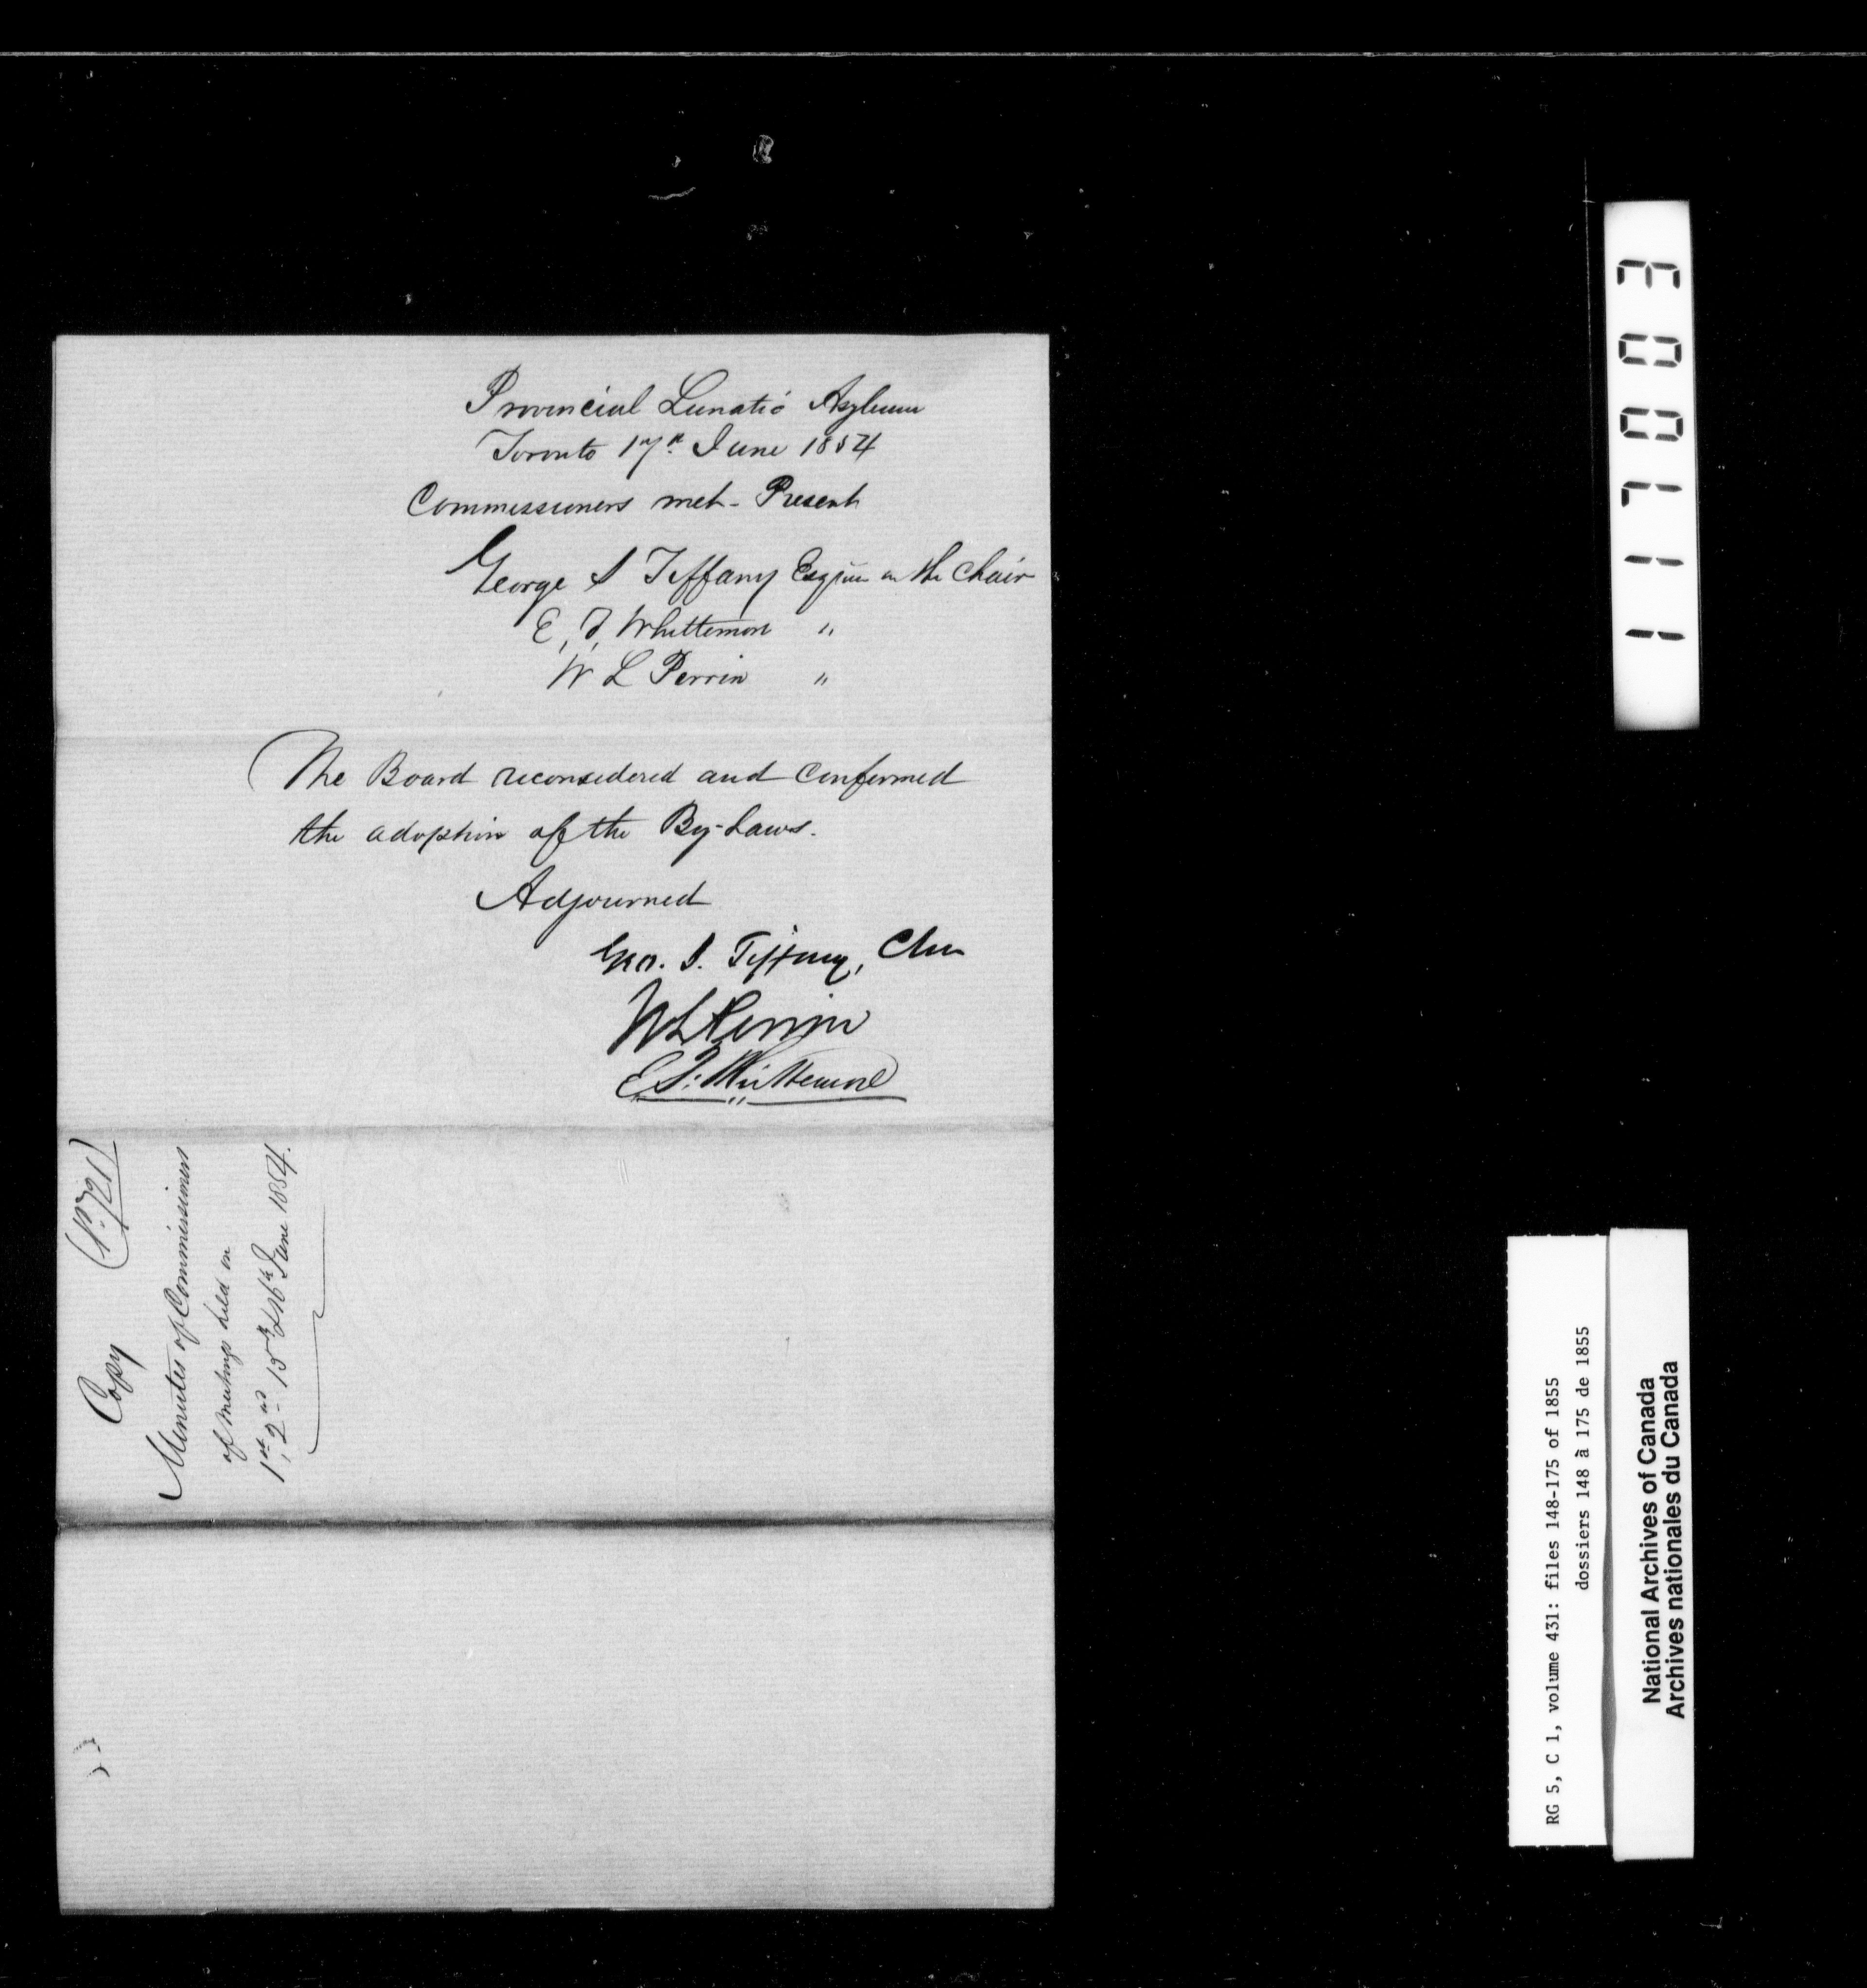 Provincial Lunatic Asylum
Toronto 17th June 1854
Commissioners met - Present
George S Tiffany Esquire in the Chair
E, F, Whittemore "
W L Perrin "
The Board reconsidered and confirmed
the adoption of the By-Laws.
Adjourned
Geo. S. Tiffany, Chn
W L Perrin
E F. Whittemore
Copy (P. 721)
Minutes of Commissioners
of Meetings held on
1st, 2nd 15th & 16th June 1854.
117003
RG 5, C 1, volume 431: files 148-175 of 1855
dossiers 148 à 175 de 1855
National Archives of Canada
Archives nationales du Canada